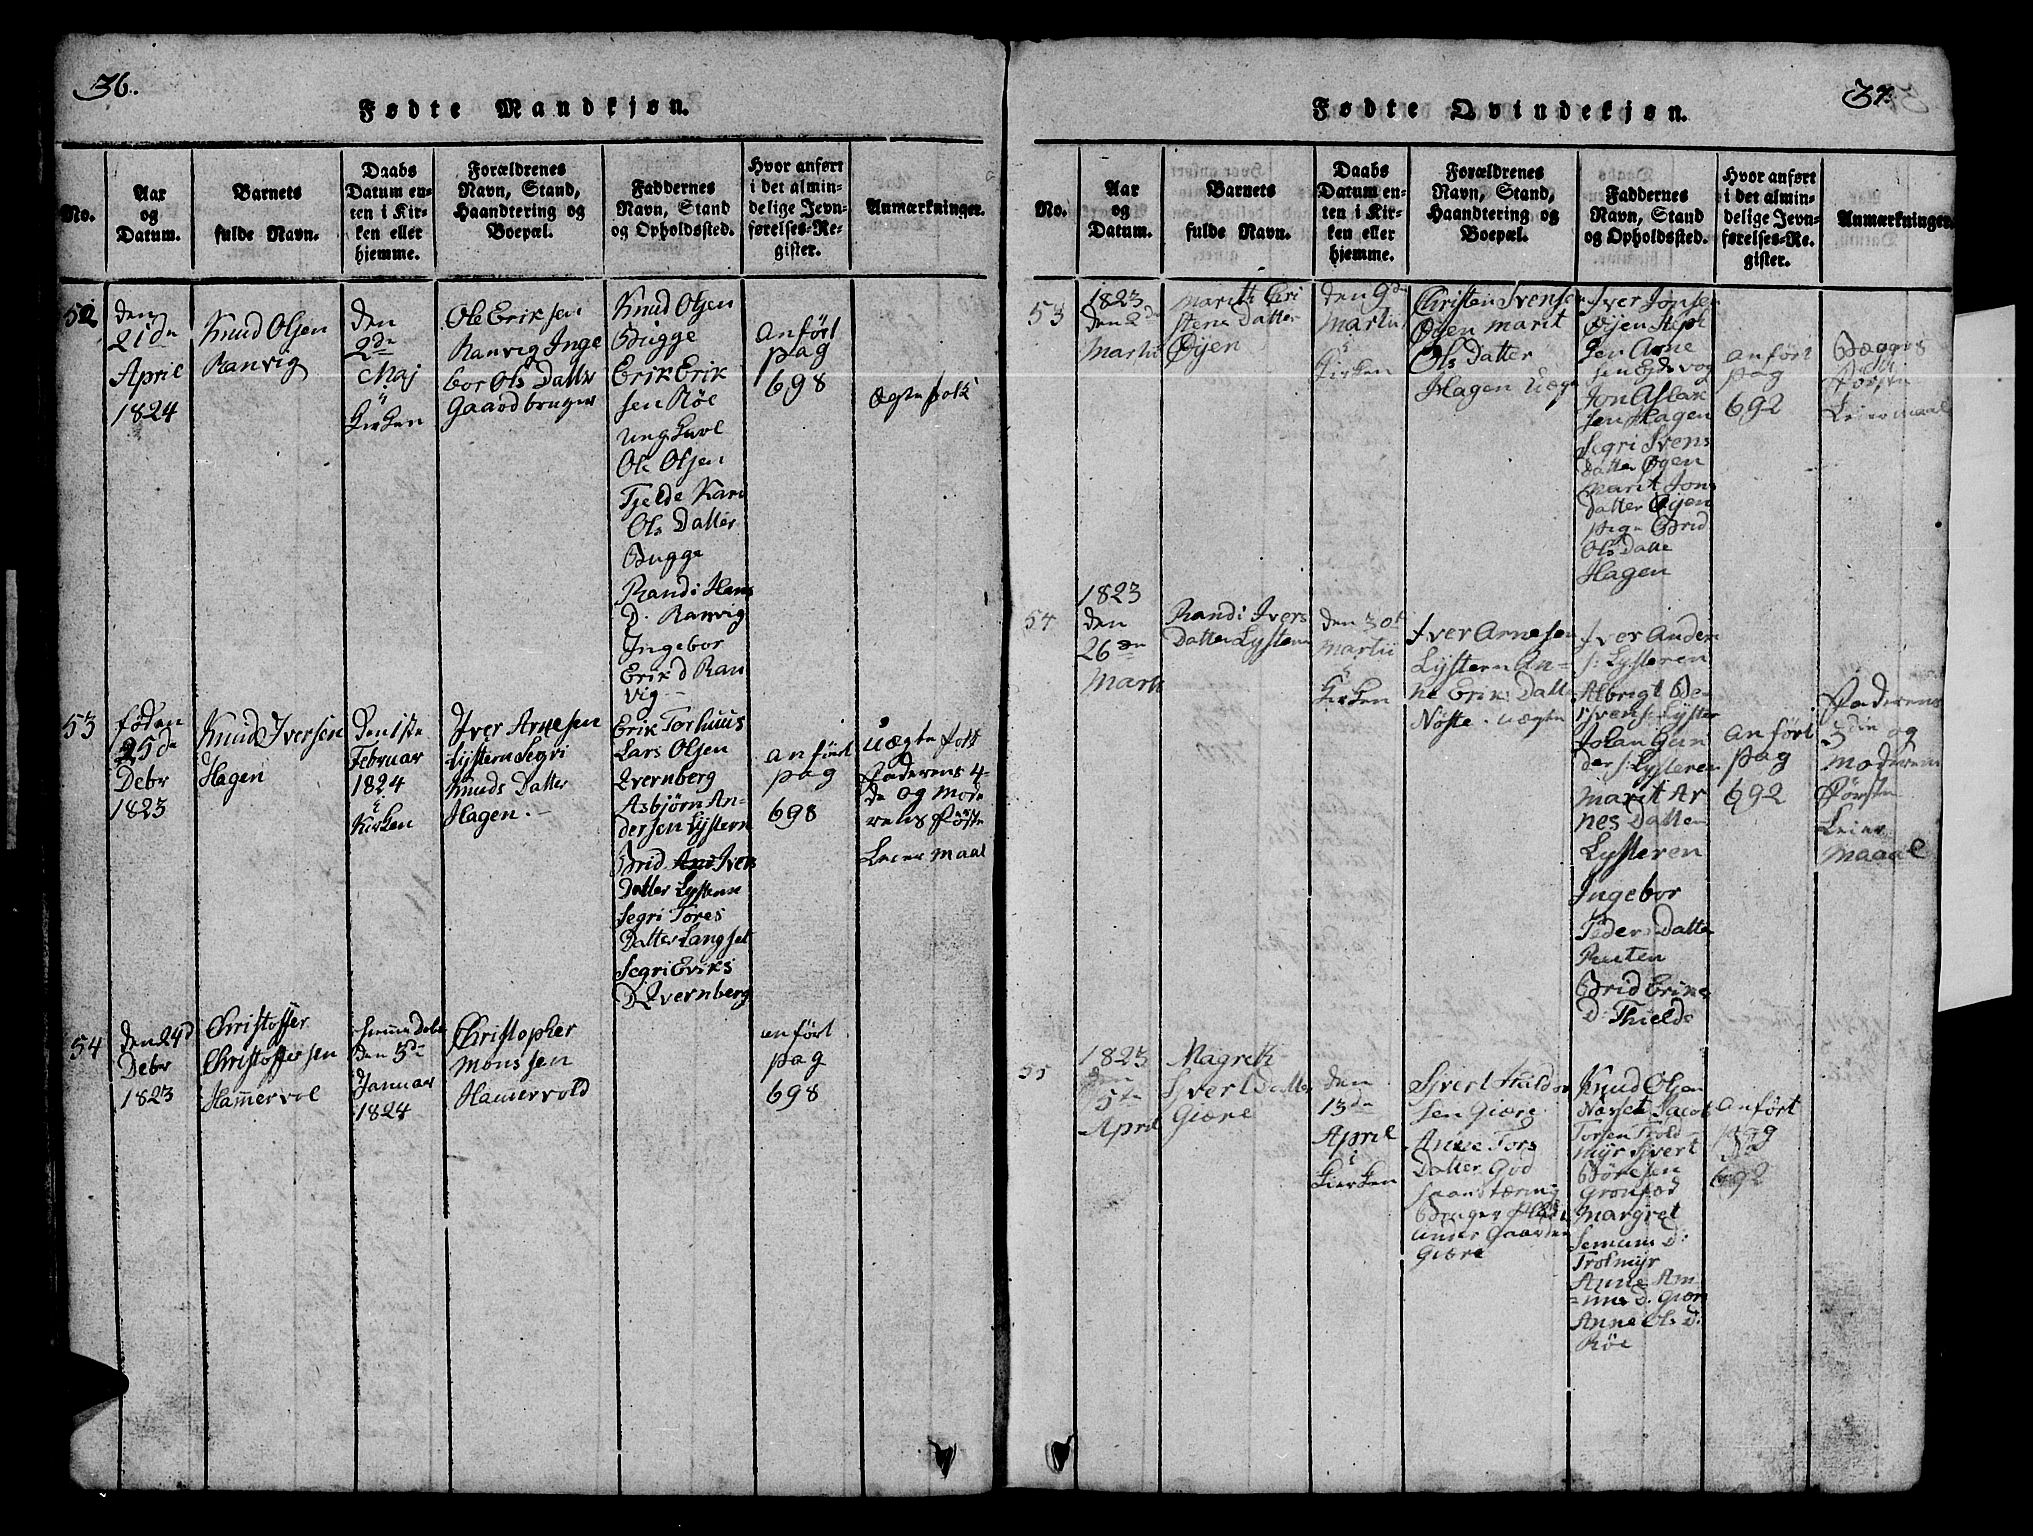 36.
Fødte Mandkjøn.
No.
Aar
og
Datum.
Barnets
fulde Navn.
Daabs
Datum en-
ten i Kir-
ken eller
hjemme.
Forældrenes
Navn, Stand,
Haandtering og
Boepæl.
Faddernes
Navn, Stand
og Opholdssted.
Hvor anført
i det almin-
delige Jevn-
førelses-Re-
gister.
Anmærkninger.
52
den
21de
April
1824
Knud Olsen
Ranvig
den
2de
Maj
i
Kirken
Ole Eriksen
Ranvig Inge
bor Ols Datter
Gaardbruger
Knud Olsen
Bugge
Erik Erik
sen Röe
Ung Karl
Ole Olsen
Tjelde Kari
Ols Datter
Bugge
Randi Hans
D. Ranvig
Ingebor
Erik d Ran
vig
anført
pag
698
Ægte folk
53
føden
25de
Debr
1823
Knud Iversen
Hagen
Den 1ste
Februar
1824
i
Kirken
Iver Arnesen
Lystern Segri
Knuds Datter
Hagen.
Erik Torhuus
Lars Olsen
Qvernberg
Asbjørn An-
dersen Lystern
Brid Ivers
Datter Lystern
Segri Tores
Datter Langset
Segri Eriks
D Qvernberg
anført
pag
698
Uægte folk
Faderens 4-
de og Mode
rens Føste
Leier maal
54
den 24d
Debr
1823
Christoffer
Christoffersen
Hammervol
Hiemme Døbt
den 3de
Januar
1824
Christopher
Monssen
Hamervold
anført
pag
698
37.
Fødte Qvindekjøn.
No.
Aar
og
Datum.
Barnets
fulde Navn.
Daabs
Datum en-
ten i Kir-
ken eller
hjemme.
Forældrenes
Navn, Stand,
Haandtering og
Boepæl.
Faddernes
Navn, Stand
og Opholdssted.
Hvor anført
i det almin-
delige Jevn-
førelses-Re-
gister.
Anmærkninger.
53
1823
den 2de
Martii
Marith Cri
stens Datter
Øyen
den 9de
Martii
i
Kirken
Christen Svensen
Øyen Marit
Ols Datter
Hagen Uægte
Iver Jonsen
Øijen Steph
sen Arne
sen Eydsvog
Jon Aslak
sen Hagen
Segri Svens
Datter Øyen
Marit Jons
Datter Øyen
pige Brid
Ols Datte
Hagen
anført
pag
692
Begges
Første
Leiermaal
54
1823
den
26de
Marti
Randi Ivers
Datter Lystern
den 30t
Martii
i
Kirken
Iver Arnesen
Lystern An-
ne Eriks Datt
Nøste. uægte
Iver Ander
s: Lysteren
Albrigt Be-
Svens: Lyster
Johan Gun
der s: Lysteren
Marit Ar
nes Datter
Lysteren
Ingebor
Peders Datte
Reiten
Brid Eriks
D: Thielde
anført
pag
692
Faderens
3die og
Moderens
Første
Leier
maaal
55
1823
den
5te
April
Magreth
Sjvert Datter
Giære
den
13de
April
i
Kirken
Sjvert Haldor
sen Giære
Anne Tors
Datter God
Haandtæring
Bruger
under Gaarden
Giære
Knud Olsen
Norset Jacob
Torsen Trold-
myr Sjvert
Børesen
Gronset
Margret
Semuns D:
Trolmyr
Anne Am-
uns D. Giære
Anne Ols D:
Röe
anført
pag
692